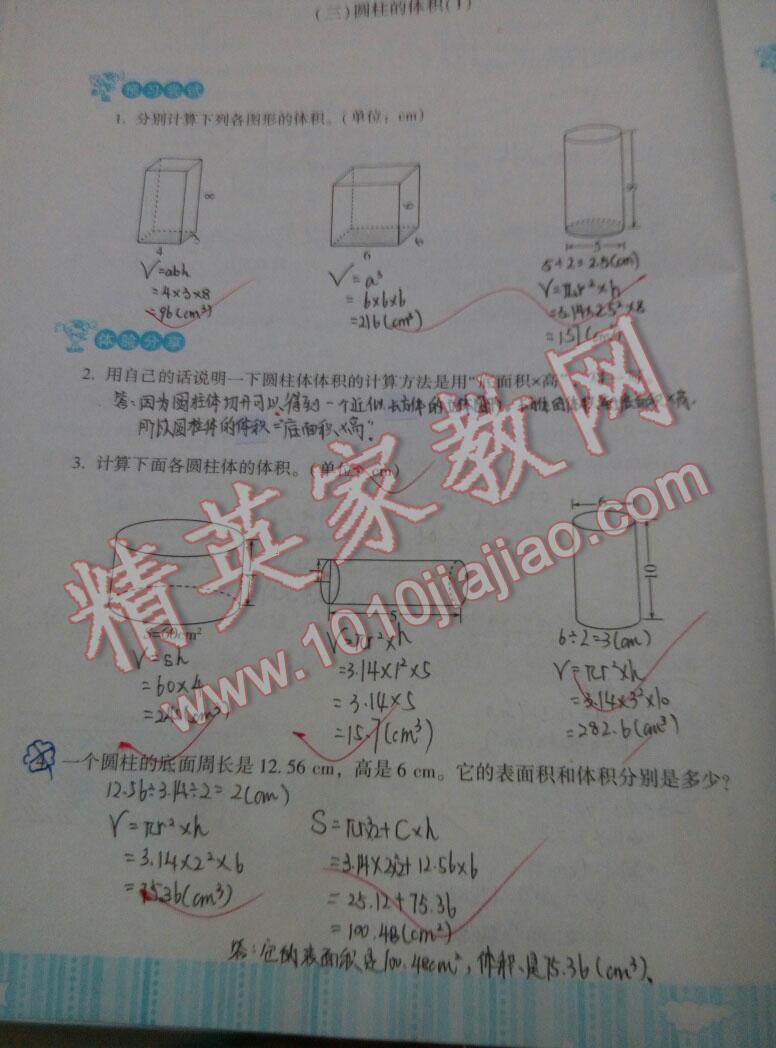 (三)圆柱的体积(1)
预习尝试
1. 分别计算下列各图形的体积。(单位：cm)
8
4
6
6
6
5
5÷2=2.5(cm)
V=abh
=4×3×8
=96(cm³)
V=a³
=6×6×6
=216(cm³)
V=πr²×h
=3.14×2.5²×8
=157(cm³)
体验分享
2. 用自己的话说明一下圆柱体体积的计算方法是用“底面积×高
答：因为圆柱体切开可以得到一个近似长方体的立体图形
所以圆柱体的体积=“底面积×高”。
3. 计算下面各圆柱体的体积。(单位：cm)
S=60cm²
5
6
10
V=sh
=60×4
=240(cm³)
V=πr²×h
=3.14×1²×5
=3.14×5
=15.7(cm³)
6÷2=3(cm)
V=πr²×h
=3.14×3²×10
=282.6(cm³)
4. 一个圆柱的底面周长是 12.56 cm，高是 6 cm。它的表面积和体积分别是多少？
12.56÷3.14÷2=2(cm)
V=πr²×h
=3.14×2²×6
=75.36(cm³)
S=πr²×2+C×h
=3.14×2²×2+12.56×6
=25.12+75.36
=100.48(cm²)
答：它的表面积是100.48cm²，体积是75.36(cm³)。
精英家教网
www.1010jiajiao.com